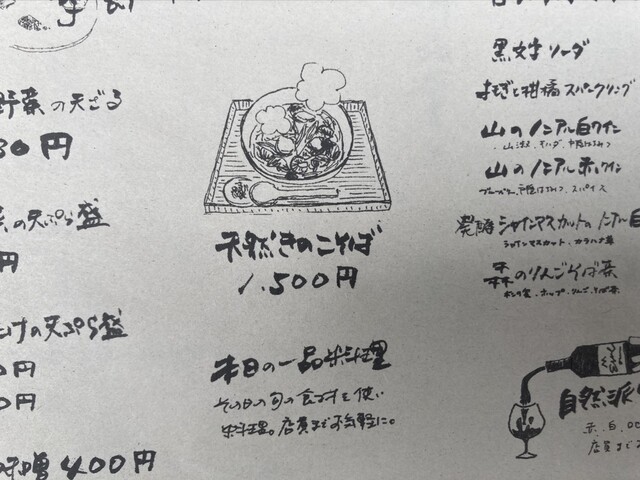 野菜の天ざる
30円
の天ぷら盛
円
の天ぷら盛
円
0円
味噌 400円
天然きのこそば
1,500円
本日の一品料理
その日の旬の食材を使い
料理。店員までお気軽に。
黒文字ソーダ
よもぎと柑橘スパークリング
山のノンアル白ワイン
山のノンアル赤ワイン
スパイス
発酵シャインマスカットのノンアル
シャインマスカット・カラハナ草
森のりんごそば茶
ホップ・りんご・そば茶
自然派
赤、白、
店員まで